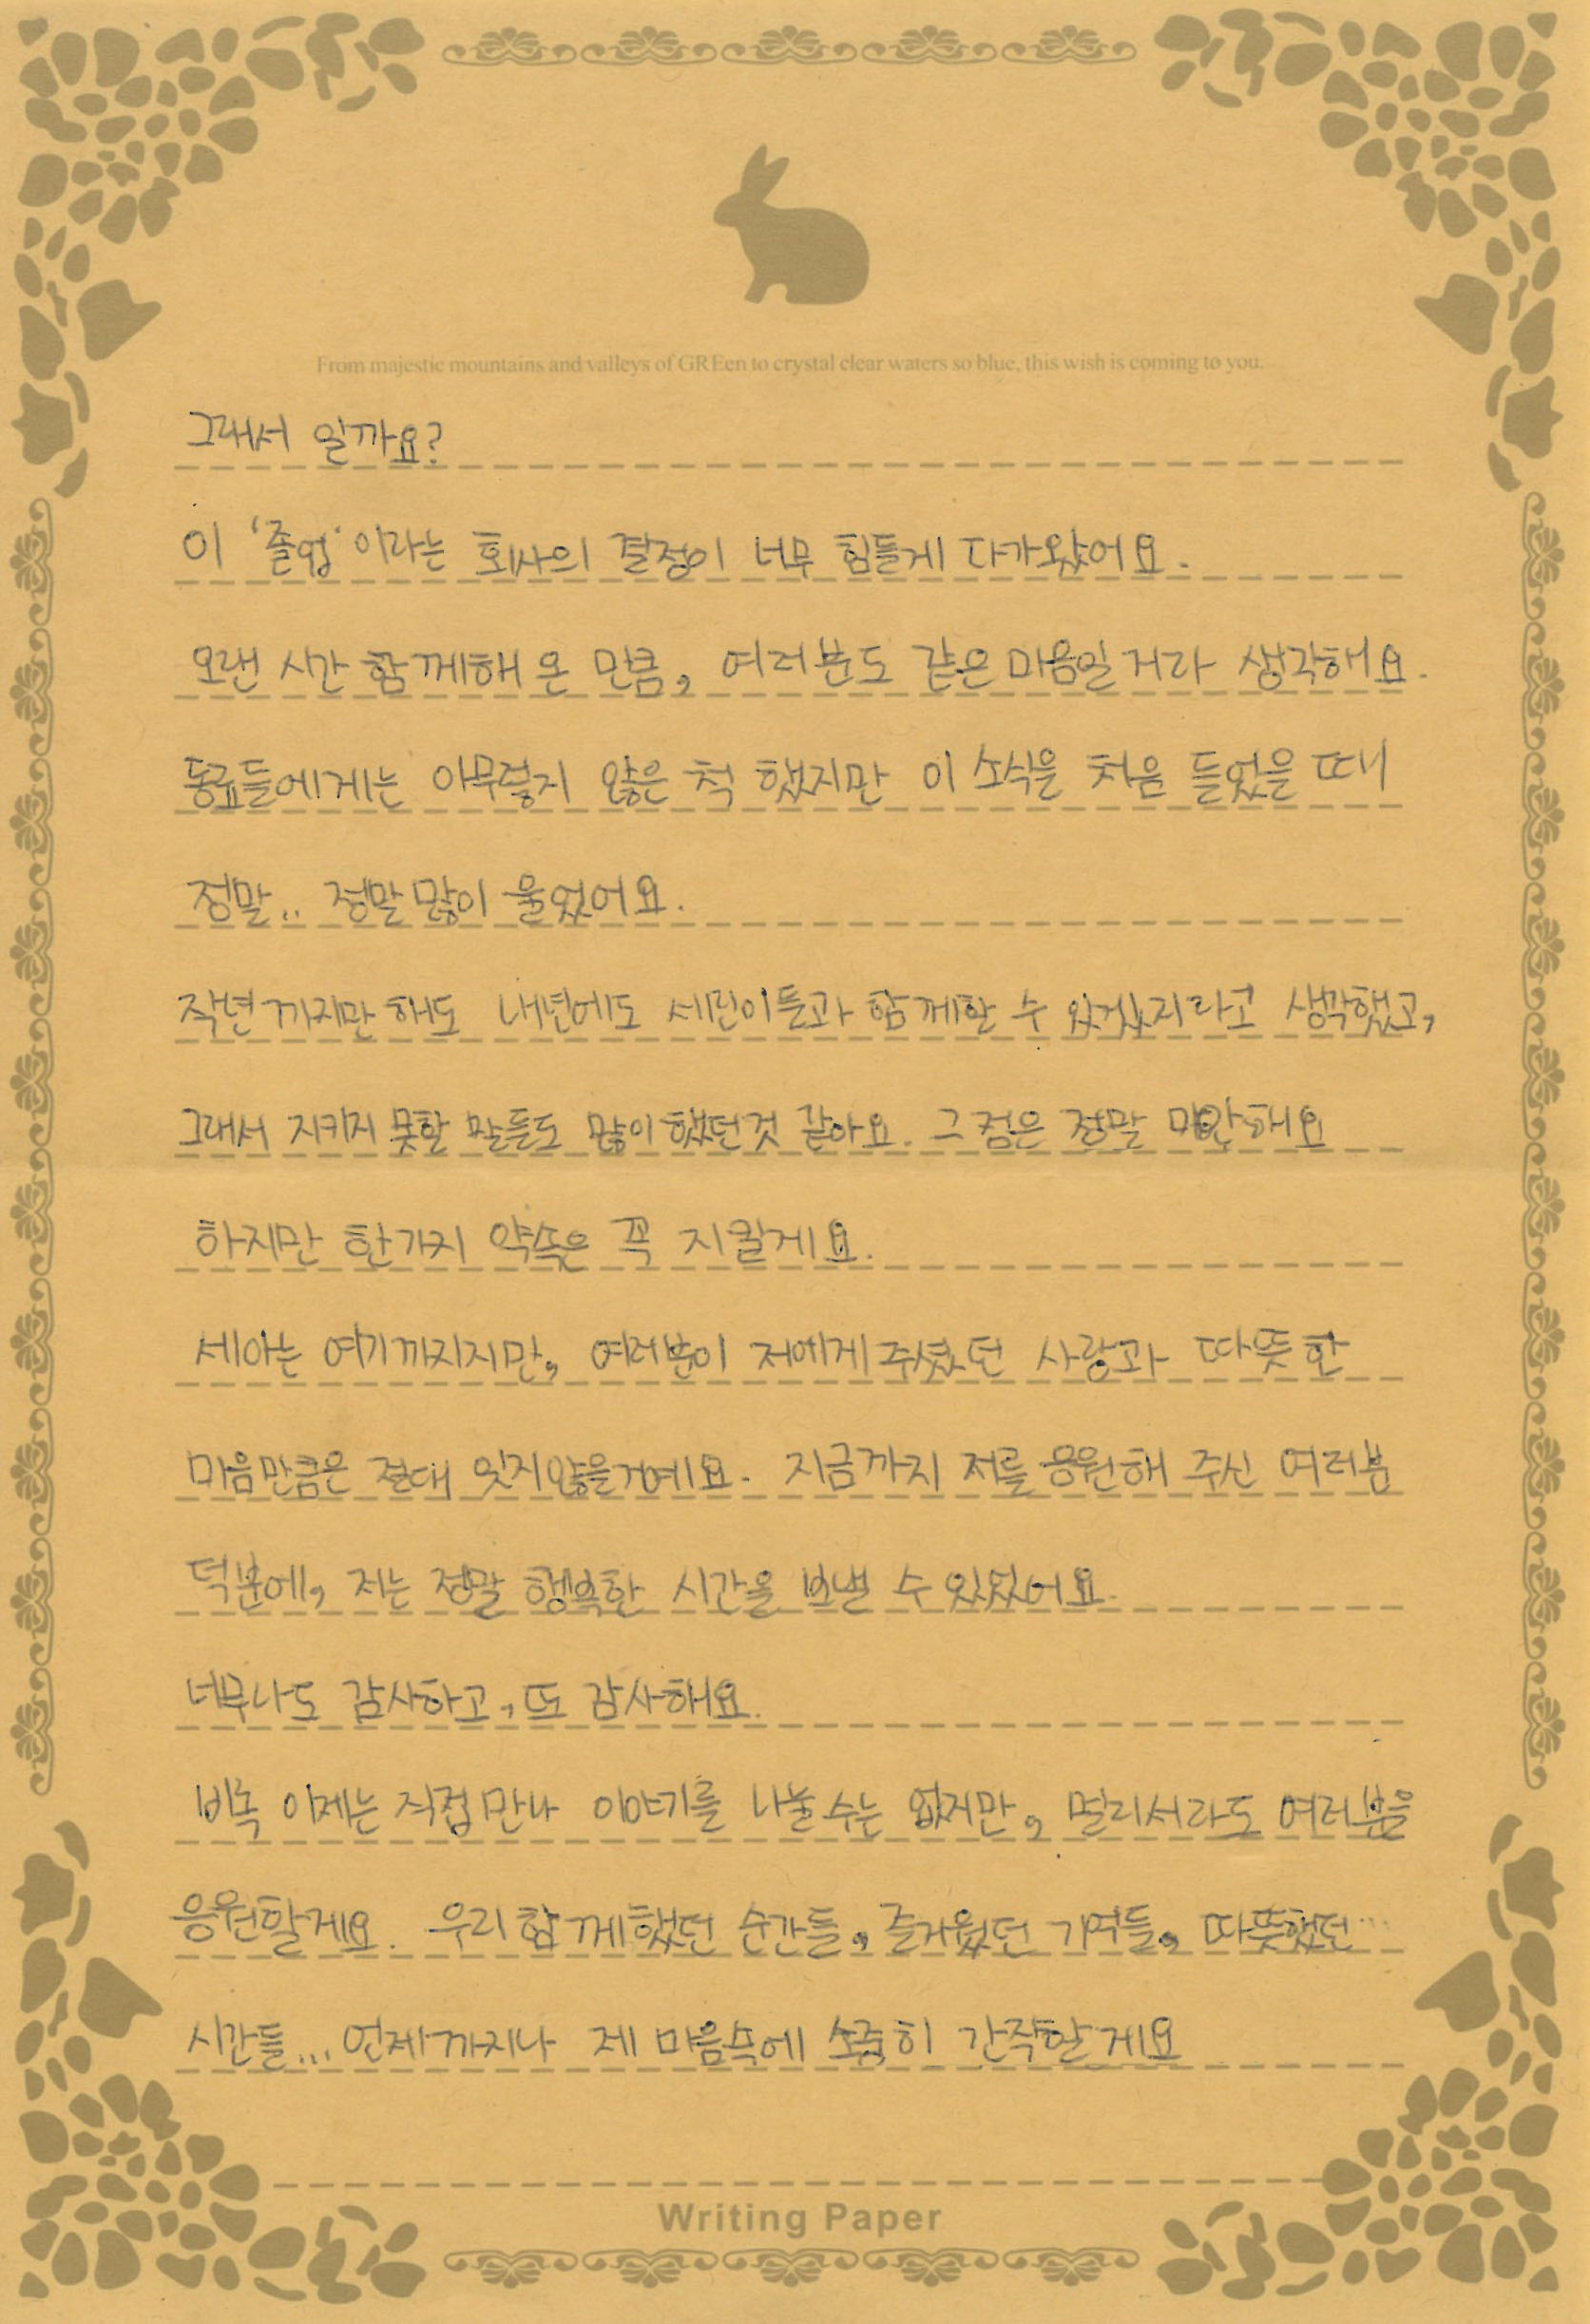 From majestic mountains and valleys of GREen to crystal clear waters so blue, this wish is coming to you.
그래서 일까요?
이 '졸업' 이라는 회사의 결정이 너무 힘들게 다가왔어요.
오랜 시간 함께해 온 만큼, 여러분도 같은 마음일 거라 생각해요.
동료들에게는 아무렇지 않은 척 했지만 이 소식을 처음 들었을 때
정말.. 정말 많이 울었어요.
작년까지만 해도 내년에도 세린이들과 함께할 수 있겠지라고 생각했고,
그래서 지키지 못할 말들도 많이 했던것 같아요. 그 점은 정말 미안해요
하지만 한가지 약속은 꼭 지킬게요.
세아는 여기까지지만, 여러분이 저에게 주셨던 사랑과 따뜻한
마음만큼은 절대 잊지않을거예요. 지금까지 저를 응원해 주신 여러분
덕분에, 저는 정말 행복한 시간을 보낼 수 있었어요.
너무나도 감사하고, 또 감사해요.
비록 이제는 직접 만나 이야기를 나눌 수는 없지만, 멀리서라도 여러분을
응원할게요. 우리 함께했던 순간들, 즐거웠던 기억들, 따뜻했던...
시간들... 언제까지나 제 마음속에 소중히 간직할게요
Writing Paper